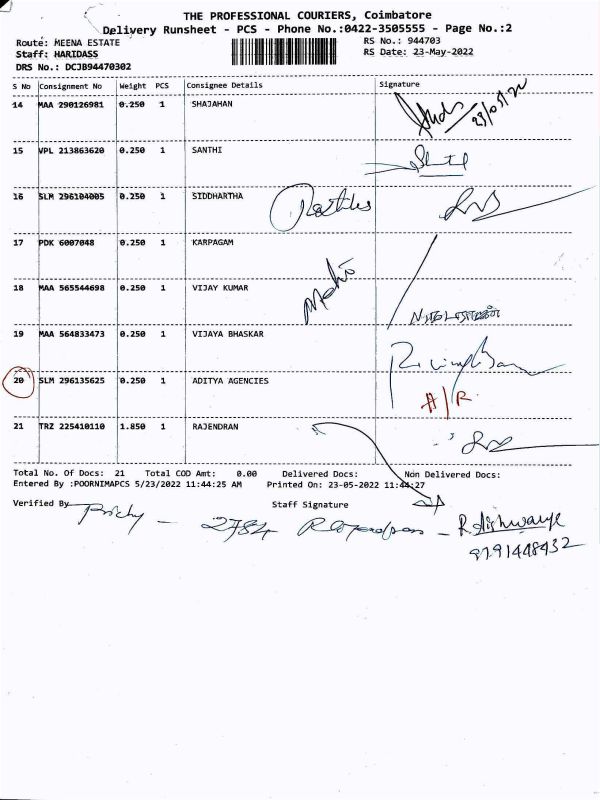 THE PROFESSIONAL COURIERS, Coimbatore
Delivery Runsheet - PCS - Phone No.:0422-3505555 - Page No.:2
Route: MEENA ESTATE RS No.: 944703
Staff: HARIDASS RS Date: 23-May-2022
DRS No.: DCJB94470302
S No Consignment No Weight PCS Consignee Details Signature
14 MAA 290126981 0.250 1 SHAJAHAN 23/05/22
15 VPL 213863620 0.250 1 SANTHI
16 SLM 296104005 0.250 1 SIDDHARTHA
17 PDK 6007048 0.250 1 KARPAGAM
18 MAA 565544698 0.250 1 VIJAY KUMAR
19 MAA 564833473 0.250 1 VIJAYA BHASKAR
20 SLM 296135625 0.250 1 ADITYA AGENCIES A/R
21 TRZ 225410110 1.850 1 RAJENDRAN
Total No. Of Docs: 21 Total COD Amt: 0.00 Delivered Docs: Non Delivered Docs:
Entered By :POORNIMAPCS 5/23/2022 11:44:25 AM Printed On: 23-05-2022 11:44:27
Verified By Staff Signature
2784 R. Aishwarya
9791448432